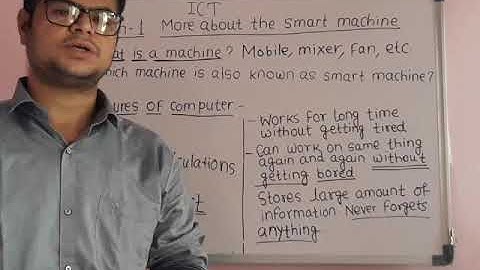 ICT
1 More about the smart machine
is a machine? Mobile, mixer, Fan, etc
machine is also known as smart machine?
of computer:-
- Works for long time
without getting tired
- Can work on same thing
again and again without
getting bored
Stores large amount of
information Never forgets
anything